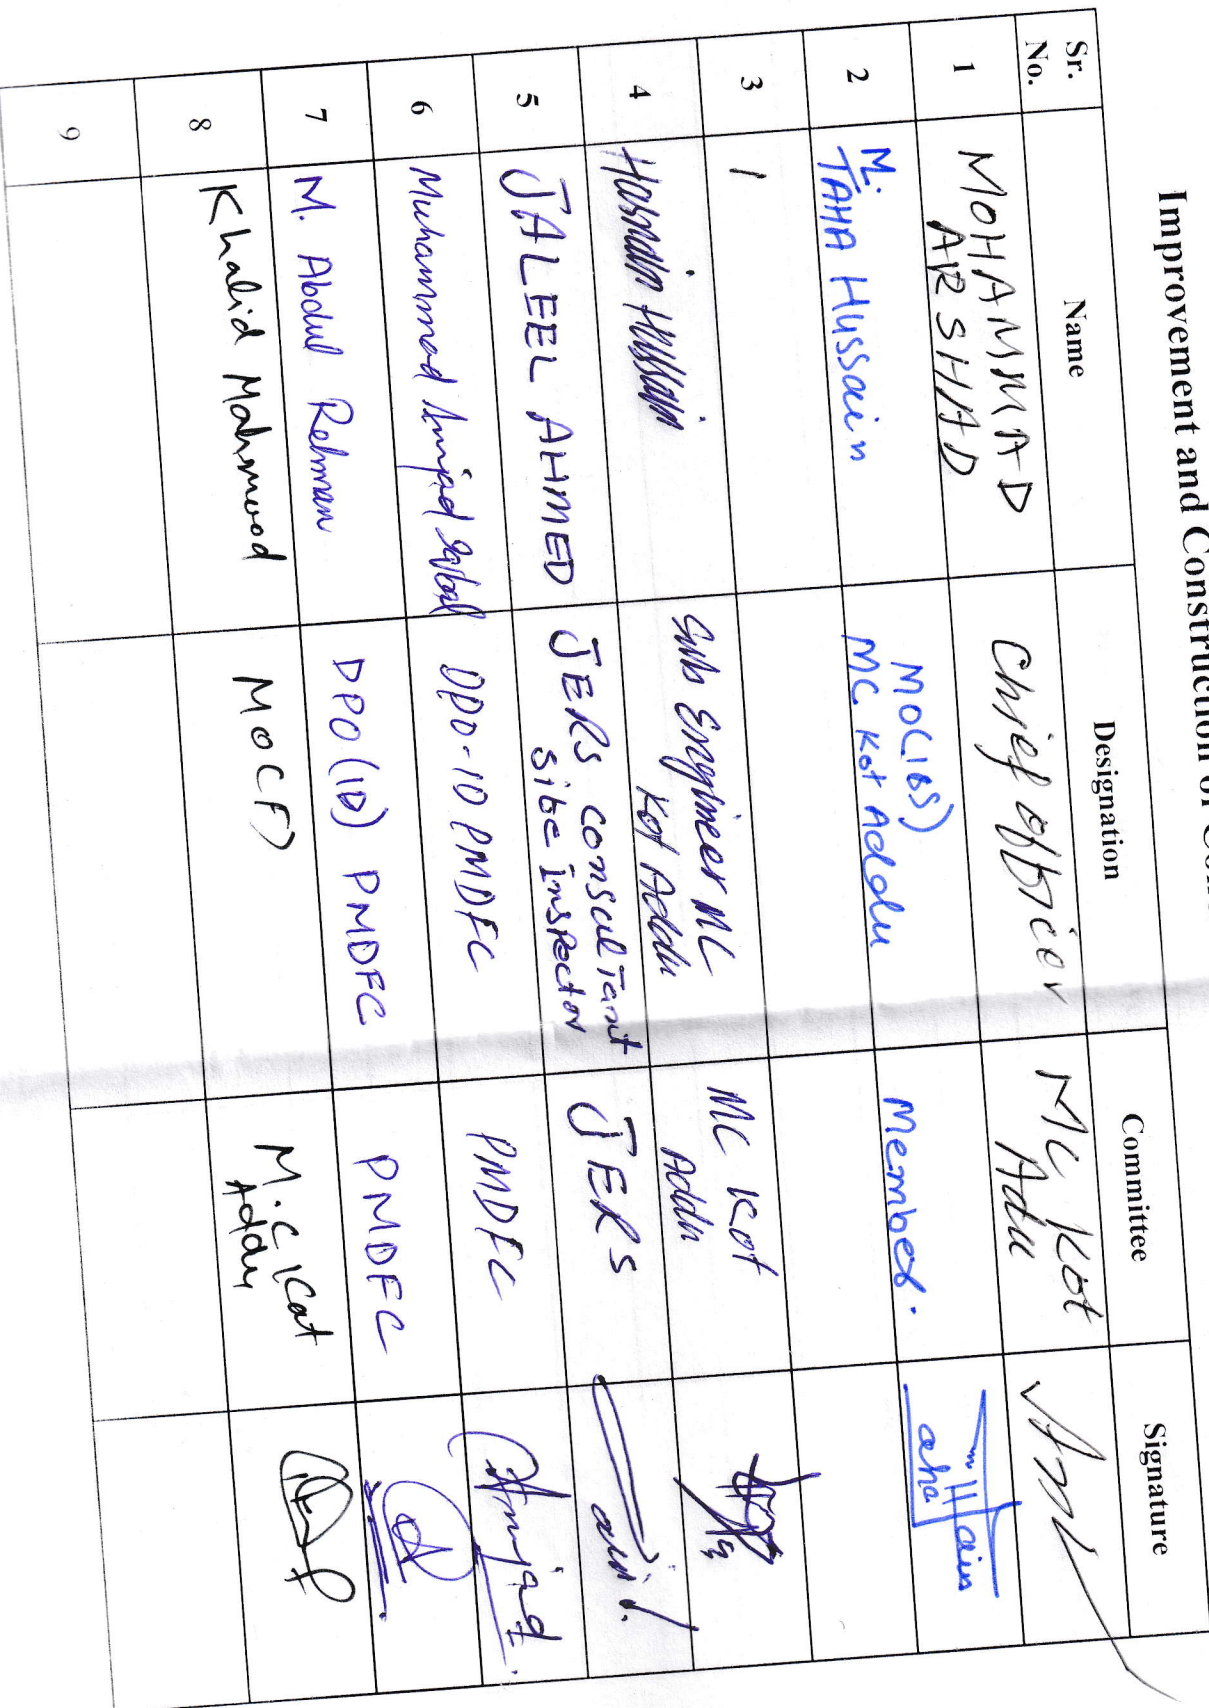 Improvement and Construction of
Sr. No. Name Designation Committee Signature
1 MOHAMMAD ARSHAD Chief officer MC Kot Adu
2 M. TAHA Hussain MO(I&S) MC Kot Addu Member.
3 /
4 Hasnain Hussain Sub Engineer MC Kot Addu MC Kot Addu
5 JALEEL AHMED JERS consultant Site Inspector JERS
6 Muhammad Amjad Iqbal DDO-ID PMDFC PMDFC Amjad.
7 M. Abdul Rehman DPO (ID) PMDFC PMDFC
8 Khalid Mahmood MO(F) M.C Kot Addu
9